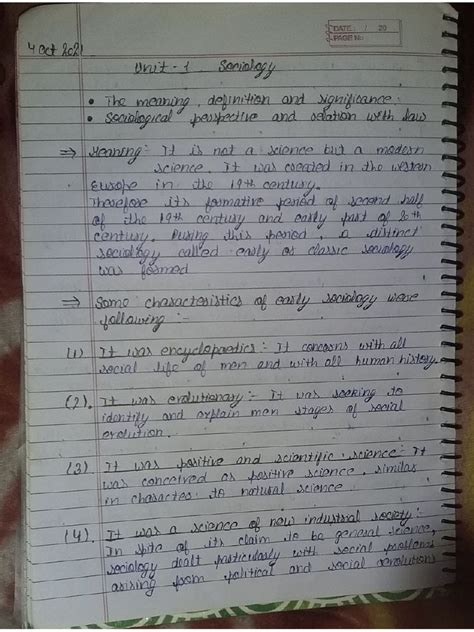 DATE: / 20
PAGE No.:
4 Oct 2021
Unit - 1 Sociology
• The meaning, definition and significance.
• Sociological perspective and relation with law
⇒ Meaning :- It is not a science but a modern
science. It was created in the western
Europe in the 19th century.
Therefore its formative period of second half
of the 19th century and early part of 20th
century. During this period, a distinct
sociology called early or classic sociology
was formed
⇒ Some characteristics of early sociology were
following :-
(1) It was encyclopaedics :- It concerns with all
social life of men and with all human history.
(2). It was evolutionary :- It was seeking to
identify and explain men stages of social
evolution.
(3) It was positive and scientific science :- It
was conceived as positive science, similar
in character to natural science
(4). It was a science of new industrial society :-
In spite of its claim to be general science,
sociology dealt particularly with social problems
arising from political and social revolutions